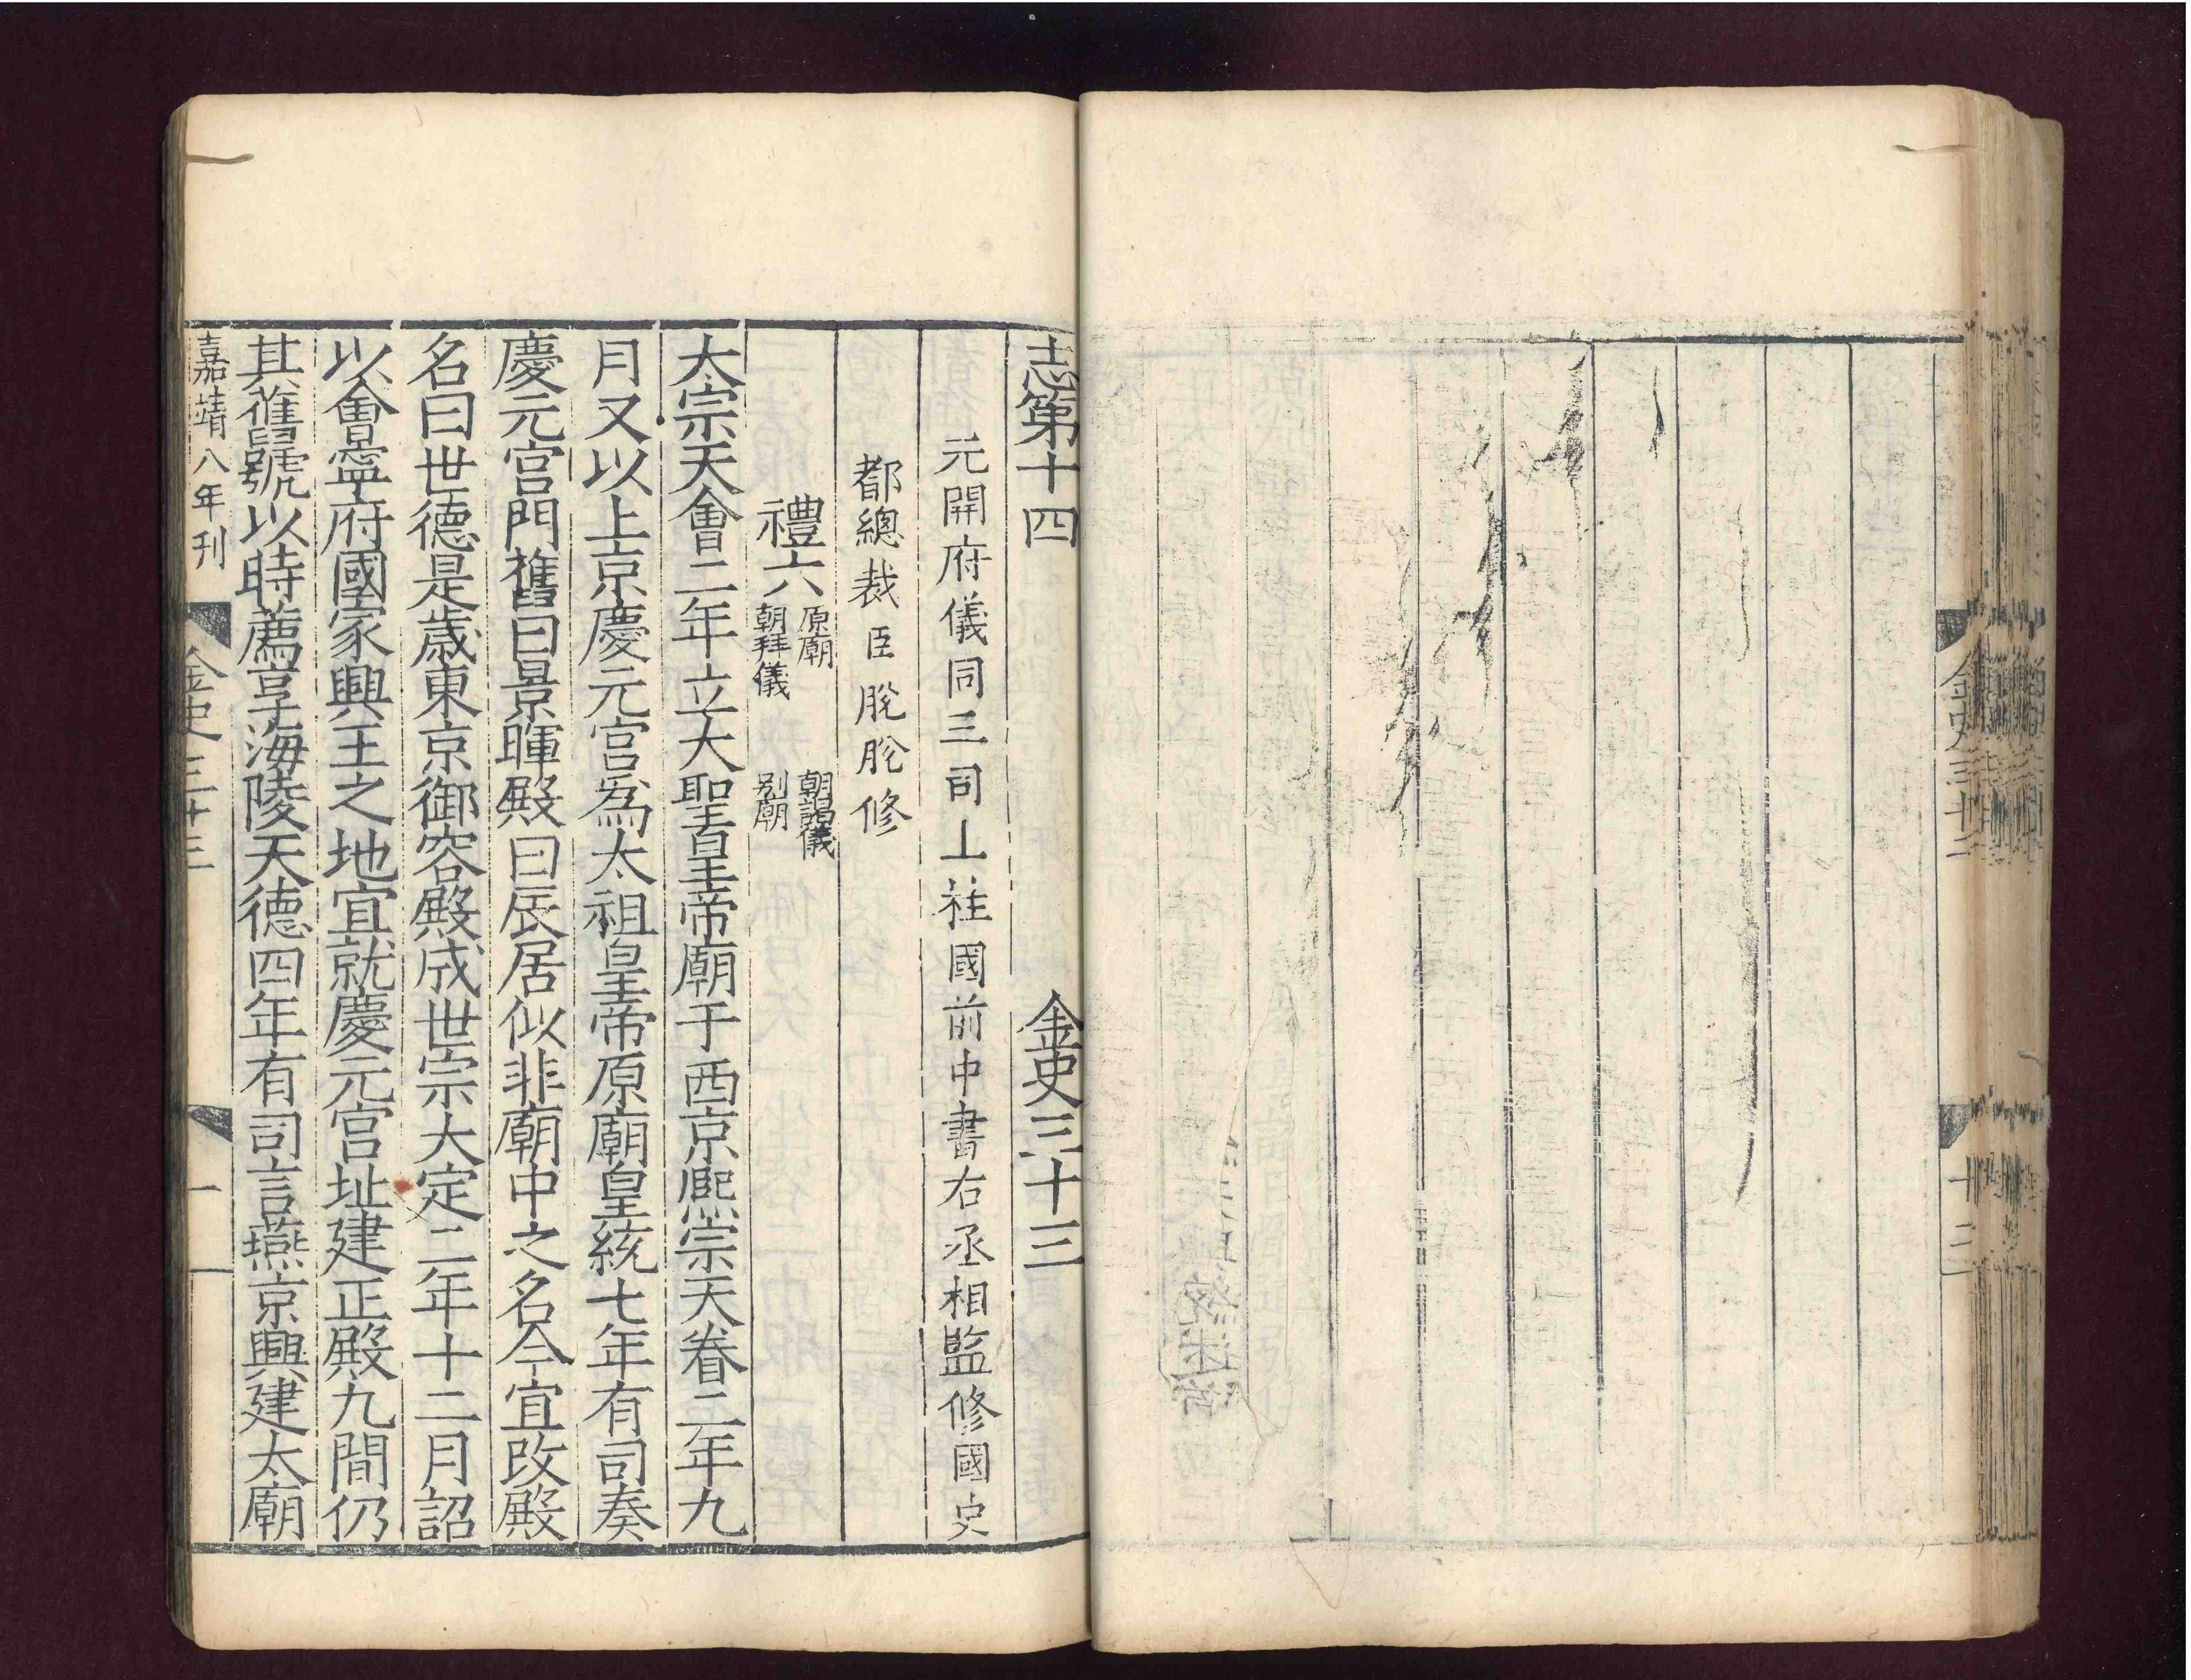 金史三十二
十二
志第十四　金史三十三
元開府儀同三司上柱國前中書右丞相監修國史
都總裁臣脫脫修
禮六　原廟　朝謁儀
朝拜儀　別廟
太宗天會二年立大聖皇帝廟于西京熈宗天眷二年九
月又以上京慶元宮爲太祖皇帝原廟皇統七年有司奏
慶元宮門舊曰景暉殿曰辰居似非廟中之名今宜改殿
名曰世德是歳東京御容殿成世宗大定二年十二月詔
以會寧府國家興王之地宜就慶元宮址建正殿九間仍
其舊號以時薦享海陵天德四年有司言燕京興建太廟
嘉靖八年刊
金史三十三
一